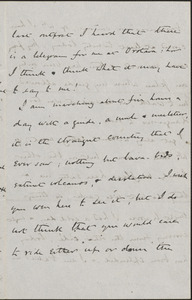 last outpost I heard that there
is a telegram for me at
I think & think what it may have
to say to me!
I am marching about five hours a
day with a guide, a mule & muleteer,
it is the strangest country that I
ever saw, nothing but lava beds
extinct volcanos, & desolation. I wish
you were here to see it, but I do
not think that you would care
to ride either up or down the